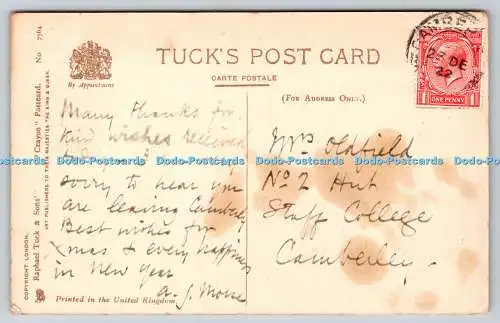 TUCK'S POST CARD
CARTE POSTALE
(FOR ADDRESS ONLY.)
By Appointment
COPYRIGHT LONDON.
Raphael Tuck & Sons' "Crayon" Postcard. No 7364
ART PUBLISHERS TO THEIR MAJESTIES THE KING & QUEEN.
CAMBERLEY
DE
22
ONE PENNY
Many thanks for
kind wishes received
sorry to hear you
are leaving Camberley
Best wishes for
Xmas & every happiness
in New Year
A. J. Morse
Mrs Oldfield
No 2 Hut
Staff College
Camberley
Printed in the United Kingdom.
Dodo-Postcards Dodo-Postcards Dodo-Postcards Dodo-Postcards Dodo-Postcards Dodo-Postcards